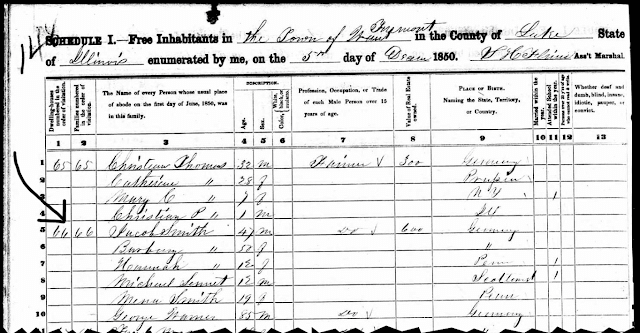 SCHEDULE I.—Free Inhabitants in the Town of Fremont in the County of Lake State
of Illinois enumerated by me, on the 5th day of 1850. Ass't Marshal.
Dwelling-houses numbered in the order of visitation.
Families numbered in the order of visitation.
The Name of every Person whose usual place of abode on the first day of June, 1850, was in this family.
DESCRIPTION.
Age.
Sex.
Color
Profession, Occupation, or Trade of each Male Person over 15 years of age.
Value of Real Estate owned.
PLACE OF BIRTH.
Naming the State, Territory, or Country.
Married within the year.
Attended School within the year.
Whether deaf and dumb, blind, insane, idiotic, pauper, or convict.
1 2 3 4 5 6 7 8 9 10 11 12 13
1 65 65 Christian Thomas 32 m Farmer 300 Germany
2 Catherine " 28 f
3 Mary C " 7 f N Y 1
4 Christian P " 1 m Ill
5 66 66 Jacob Smith 47 m Do 600 Germany
6 Barbary " 52 f "
7 Hannah " 12 f Penn 1
8 Michael 12 m Scotland 1
9 Mena Smith 19 f Penn
10 George Warner 85 m Do Germany